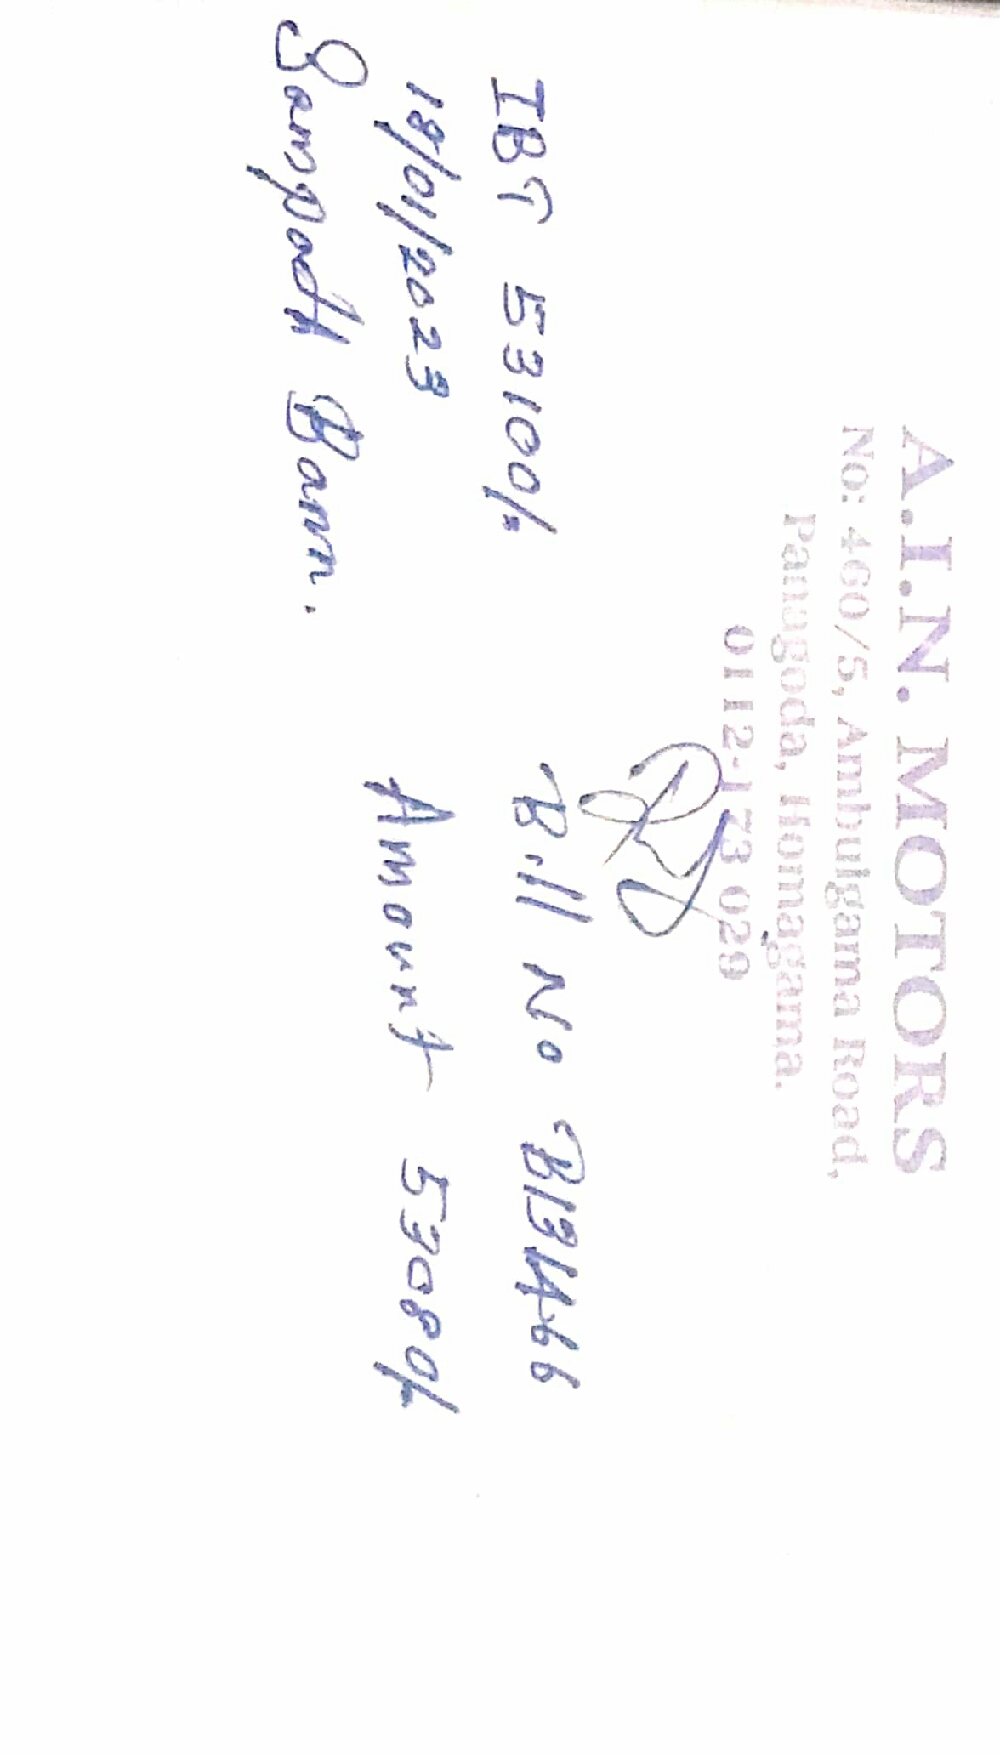 A.I.N. MOTORS
No: 460/5, Ambulgama Road,
Panugoda, Homagama.
0112-173 029
IBT 53100/=
Bill No B13466
18/01/2023
Amount 53080/-
Sampath Bann.